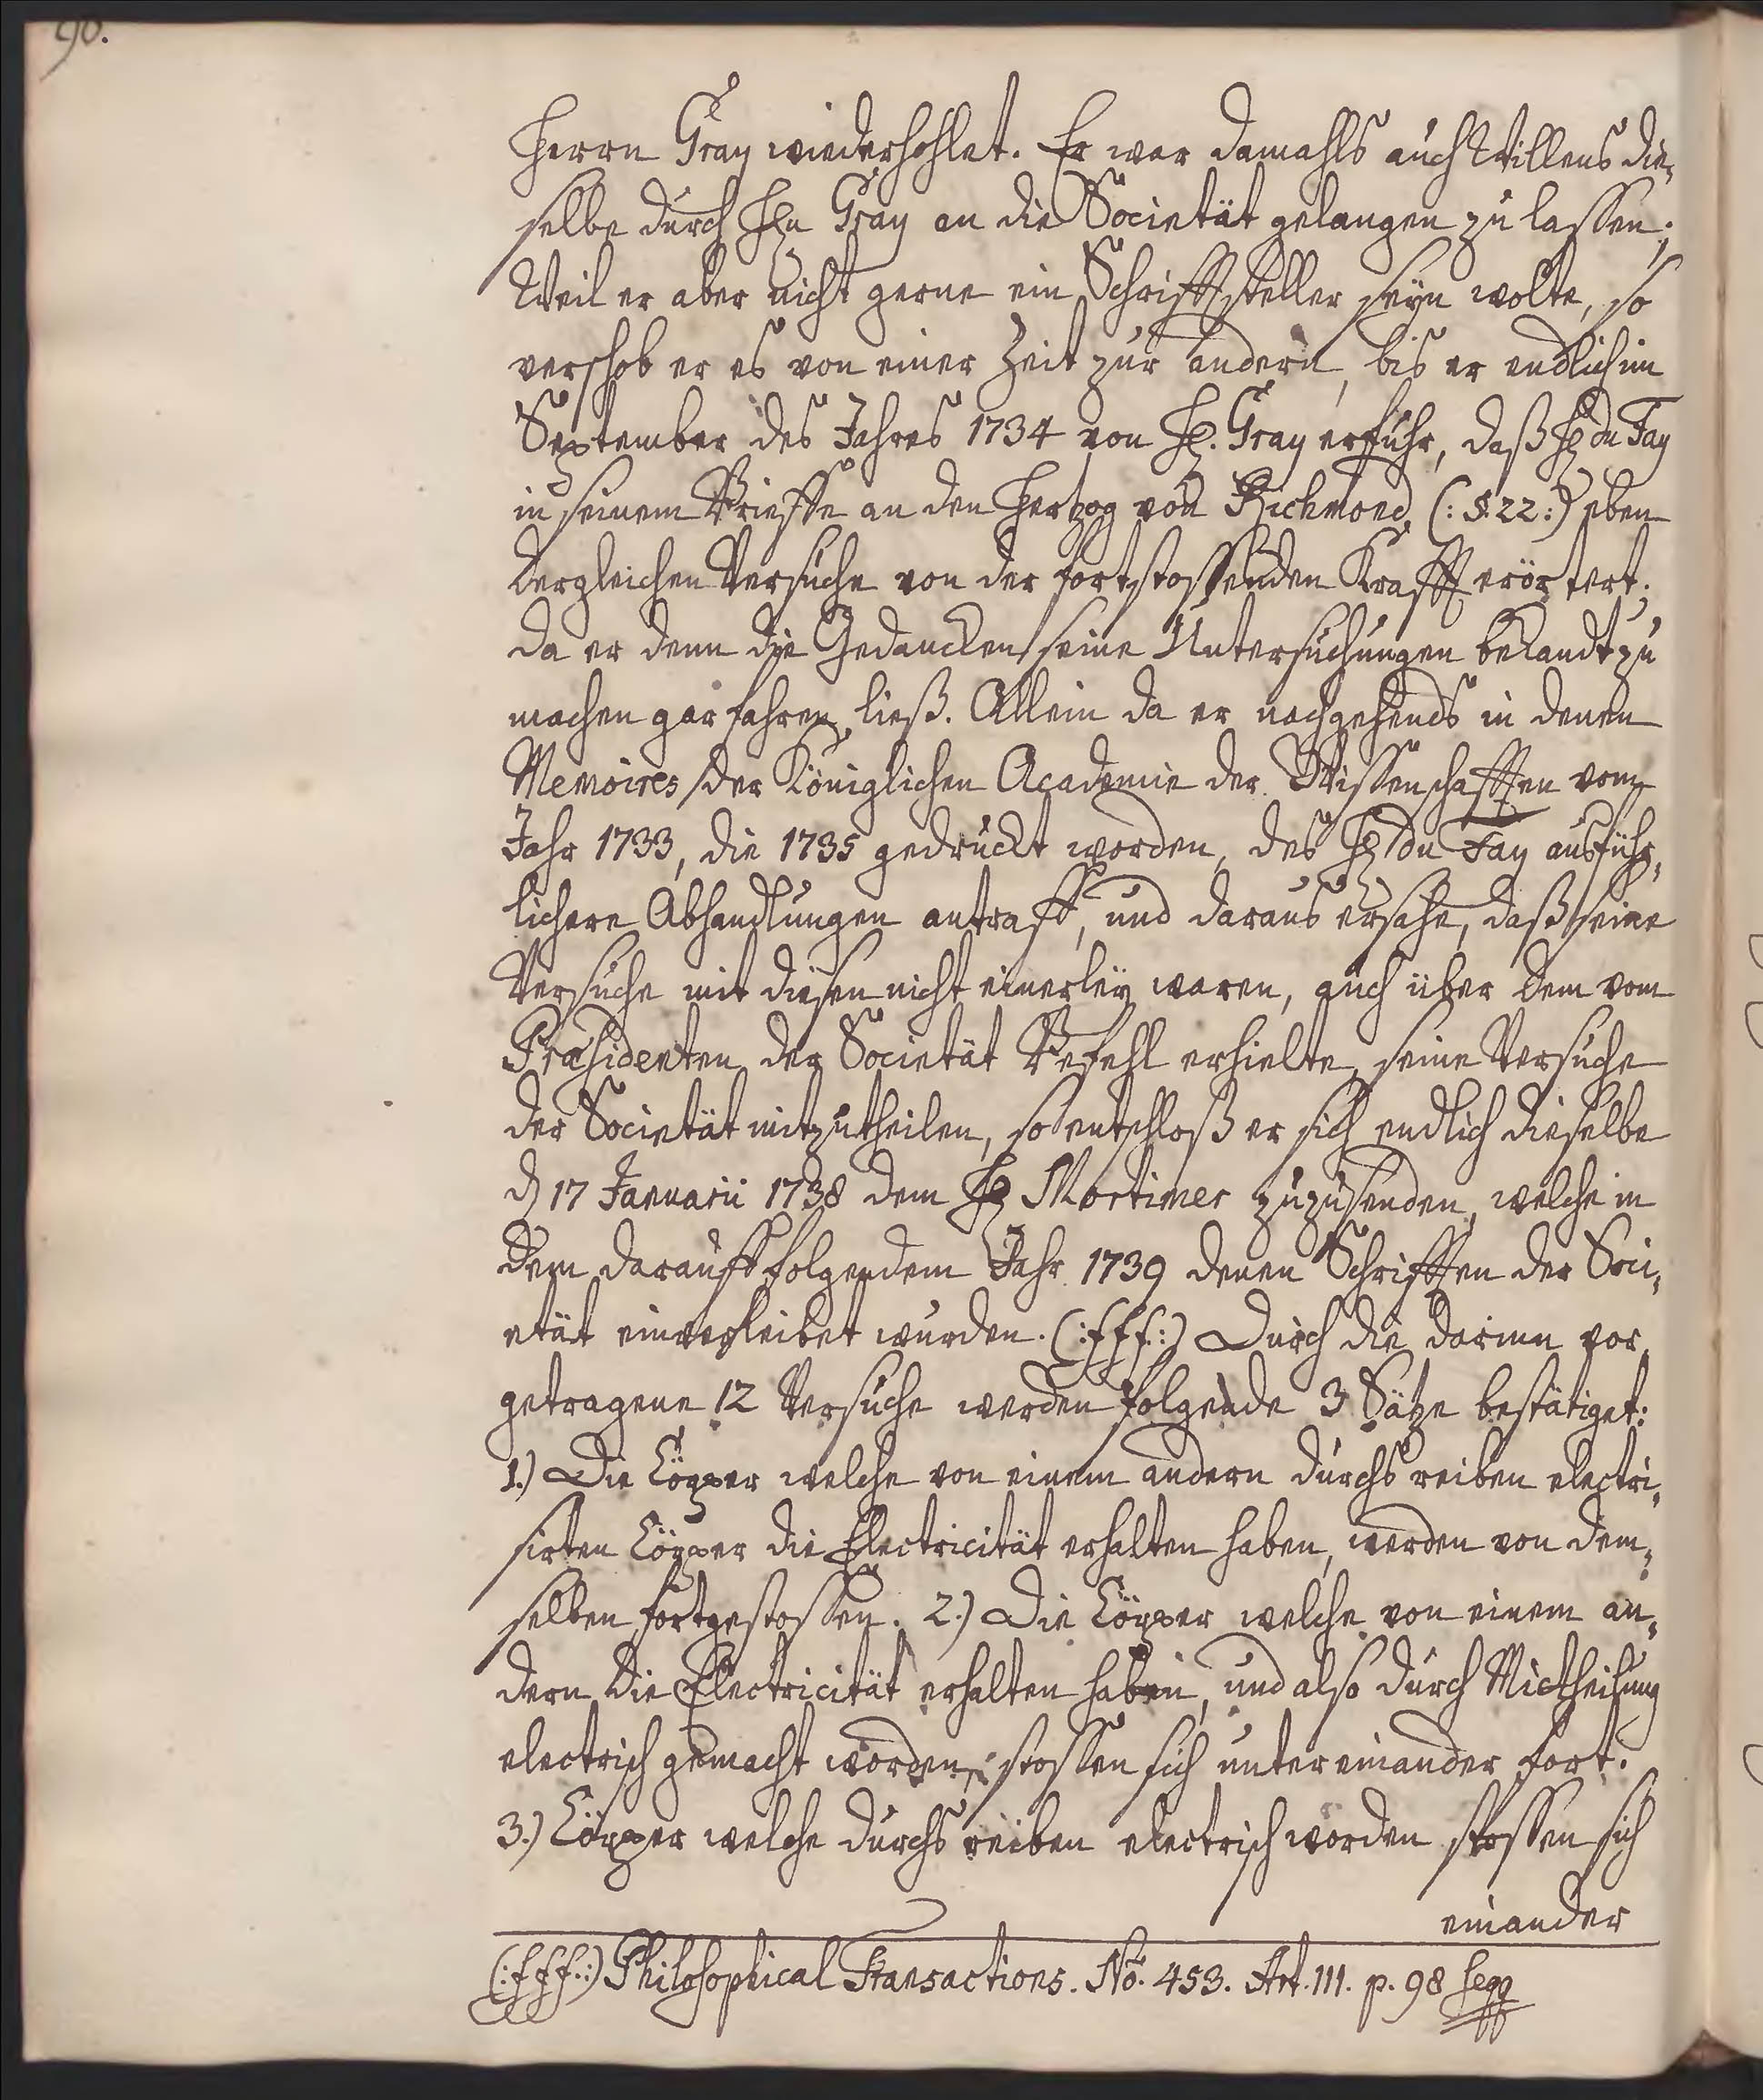 90.
Herrn Gray wiederhohlet. Er war damahls auch Willens die-
selbe durch Hn Gray an die Societät gelangen zu lassen;
Weil er aber nicht gerne ein Schrifftsteller seyn wolte, so
verschob er es von einer Zeit zur andern, bis er endlich im
September des Jahres 1734 von H. Gray erfuhr, daß H du Fay
in seinem Brieffe an den Hertzog von Richmond (: §. 22 :) eben
dergleichen Versuche von der fortstossenden Krafft erörtert;
da er denn die Gedancken seine Untersuchungen bekandt zu
machen gar fahren ließ. Allein da er nachgehends in denen
Memoires der Königlichen Academie der Wissenschafften vom
Jahr 1733, die 1735 gedruckt worden, des H du Fay ausführ-
lichere Abhandlungen antraff, und daraus ersahe, daß seine
Versuche mit diesen nicht einerley waren, auch über dem vom
Præsidenten der Societät Befehl erhielte, seine Versuche
der Societät mitzutheilen, so entschloß er sich endlich dieselbe
d 17 Januarii 1738 dem H Mortimer zuzusenden, welche in
dem darauff folgendem Jahr 1739 denen Schrifften der Soci-
etät einverleibet wurden. (: fff. :) Durch die darinn vor
getragene 12 Versuche werden folgende 3 Sätze bestätiget:
1.) Die Cörper welche von einem andern durchs reiben electri-
sirten Cörper die Electricität erhalten haben, werden von dem-
selben fortgestossen. 2.) Die Cörper welche von einem an-
dern die Electricität erhalten haben, und also durch Mittheilung
electrisch gemacht worden, stossen sich untereinander fort.
3.) Cörper welche durchs reiben electrisch worden stossen sich
einander
(: fff. :) Philosophical Transactions. No. 453. Art. III. p. 98 seqq